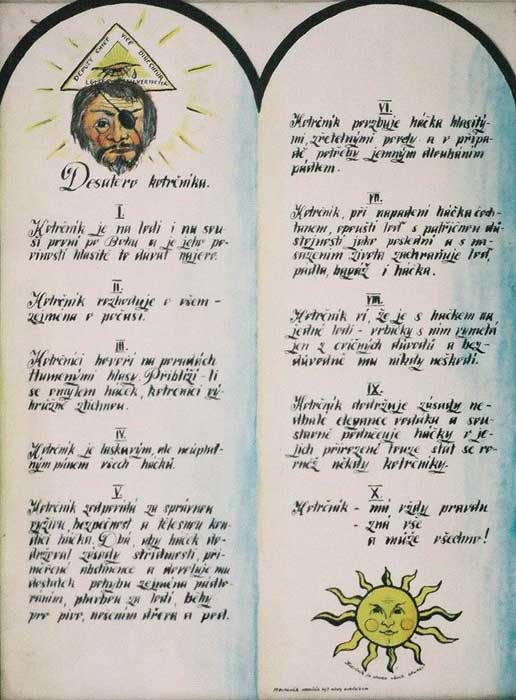 DEPUTY CHIEF VICE DIRECTRUM
Desatero kotrčníka.
I.
Kotrčník je na lodi i na sou-
ši první po Bohu a je jeho po-
vinností hlasitě to dávat najevo.
II.
Kotrčník rozhoduje o všem -
zejména o počasí.
III.
Kotrčníci hovoří na poradách
tlumenými hlasy. Přiblíží-li
se omylem háček, kotrčníci vý-
hrůžně ztichnou.
IV.
Kotrčník je laskavým, ale neúplat-
ným pánem všech háčků.
V.
Kotrčník zodpovídá za správnou
výživu, bezpečnost a tělesnou kon-
dici háčka. Dbá, aby háček do-
držoval zásady střídmosti, při-
měřené abstinence a dovoluje mu
dostatek pohybu zejména pádlo-
váním, plavbou za lodí, běhy
pro pivo, nošením dřeva a pod.
VI.
Kotrčník povzbuje háčka hlasitý-
mi, zřetelnými povely a v přípa-
dě potřeby jemným dloubáním
pádlem.
VII.
Kotrčník, při napadení háčka
opouští loď s patřičnou dů-
stojností jako poslední a s na-
sazením života zachraňuje loď,
pádla, bagáž i háčka.
VIII.
Kotrčník ví, že je s háčkem na
jedné lodi - vrbičky s ním vymetá
jen z cvičných důvodů a bez-
důvodně mu nikdy neškodí.
IX.
Kotrčník dodržuje zásady ne-
dbalé elegance vodáka a sou-
stavně podněcuje háčky v je-
jich přirozené touze stát se ro-
vněž někdy kotrčníky.
X.
Kotrčník - má vždy pravdu
- zná vše
a může všechno!